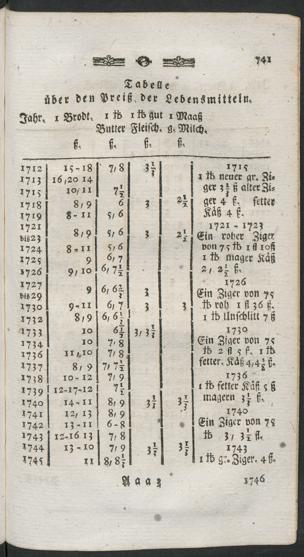 741
Tabelle
über den Preiß der Lebensmitteln.
Jahr. 1 Brodt. 1 ℔ 1 ℔ gut 1 Maaß
Butter Fleisch. g. Milch.
ß. ß. ß. ß.
1712 15-18 7, 8 3½ 1715
1713 16, 20 14 1 ℔ neuer gr. Zi-
1715 10, 11 7½ ger 3½ ß alter Zi-
1718 8, 9 6 3 2½ ger 4 ß. fetter
1719 8-11 5, 6 Käß 4 ß.
1721 1721 - 1723
bis23 8, 9 5, 6 3 2½ Ein roher Ziger
1724 8-11 5, 6 von 75 ℔ 1 fl 10ß
1725 9 6, 7 1 ℔ mager Käß
1726 9, 10 6, 7½ 2, 2½ ß.
1727 1726
bis29 9 6, 6½ 3 3 Ein Ziger von 75
1730 9-11 6, 7 3 3 ℔ roh 1 fl 36 ß.
1732 8, 9 6, 6½ 1 ℔ Unschlitt 7 ß
1733 10 6½ 3, 3½ 1730
1734 10 7, 8 Ein Ziger von 75
1736 11, 10 7, 8 ℔ 2 fl 5 ß. 1 ℔
1737 8, 9 7, 7½ fetter. Käß 4, 4½ ß.
1738 10-12 7, 9 1736
1739 12-17-12 7½ 1 ℔ fetter Käß 5 ß
1740 14-11 8, 9 3½ 3½ magern 3½ ß.
1741 12, 13 8, 9 1740
1742 13-11 6-8 Ein Ziger von 75
1743 12-16 13 7, 8 ℔ 3, 3½ fl.
1744 13-10 7, 9 3½ 3½ 1743
1745 11 8, 8½ 1 ℔ gr. Ziger. 4 ß.
Aaa 3 1746